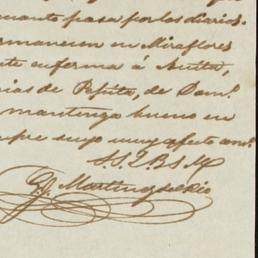 cuanto pasa por los diarios.
ermanecen en Miraflores
te enferma á Anita,
ias de Pepita, de Domº
mantengo bueno en
pre suyo muy afecto amº
S.S.Q.B.S.M.
G. J. Martinez del Rio